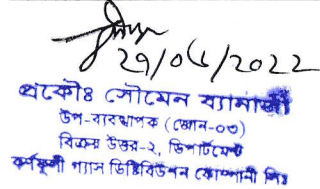 ২৭/০৬/2022
প্রকৌঃ সৌমেন ব্যানার্জী
উপ-ব্যবস্থাপক (জোন-০৩)
বিক্রয় উত্তর-২, ডিপার্টমেন্ট
কর্ণফুলী গ্যাস ডিষ্ট্রিবিউশন কোম্পানী লিঃ